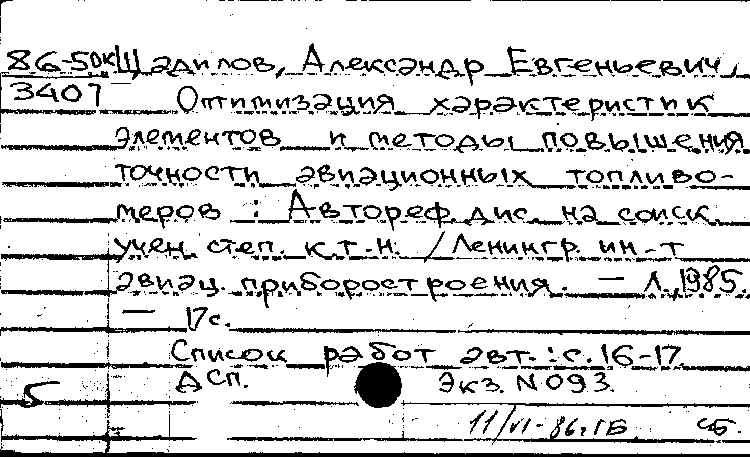 86-5ок Щадилов, Александр Евгеньевич,
3407 Оптимизация характеристик
элементов и методы повышения
точности авиационных топливо-
меров : Автореф. дис. на соиск.
учен. степ. к.т.н. / Ленингр. ин-т
авиац. приборостроения. — Л., 1985.
— 17с.
Список работ авт.: с. 16-17.
ДСП. Экз. N 093.
5
11/VI-86. ГБ СБ.